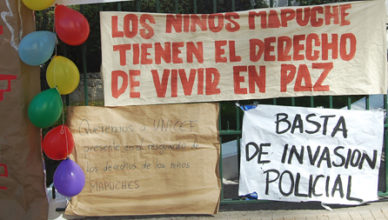 LOS NIÑOS MAPUCHE
TIENEN EL DERECHO
DE VIVIR EN PAZ
Queremos a UNICEF
presente en el resguardo de
los derechos de los niños
MAPUCHES
BASTA
DE INVASION
POLICIAL